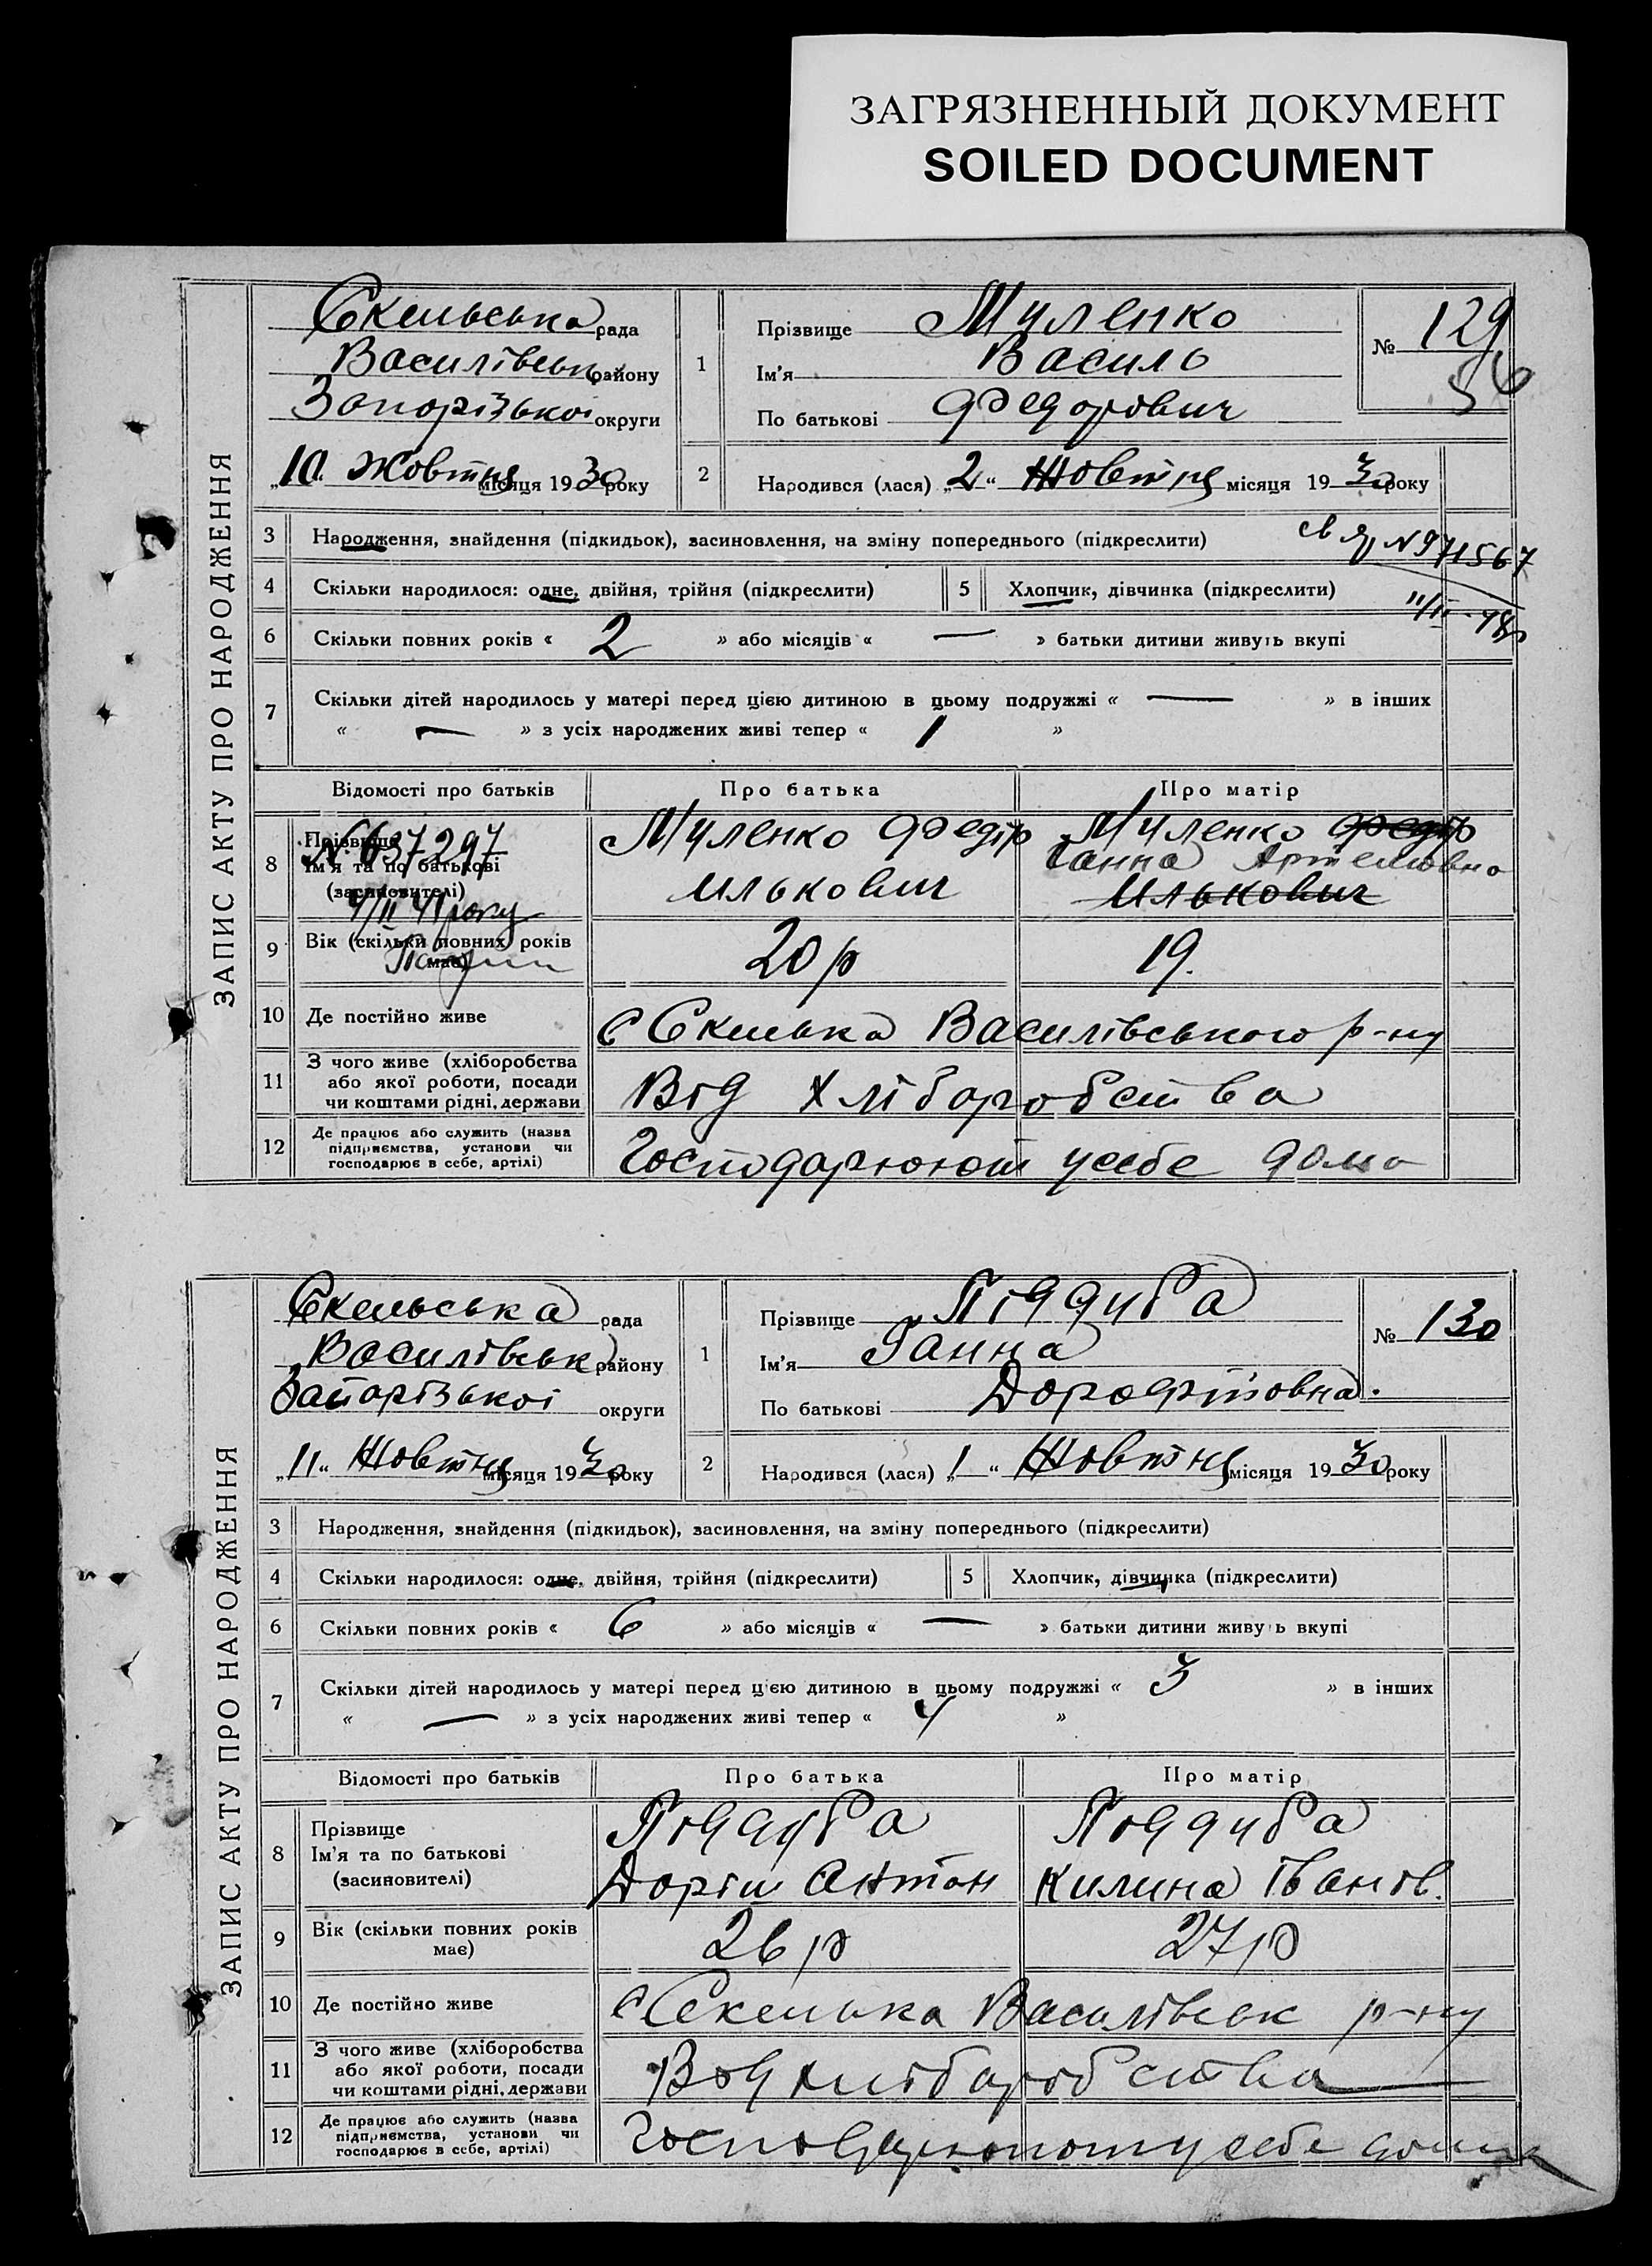 ЗАГРЯЗНЕННЫЙ ДОКУМЕНТ
SOILED DOCUMENT
ЗАПИС АКТУ ПРО НАРОДЖЕННЯ
Скельська рада
Василівськ району
Запорізької округи
„10“ Жовтня місяця 1930 року
1
Прізвище Муленко
Ім’я Василь
По батькові Федорович
№ 129
56
2
Народився (лася) „2“ Жовтня місяця 1930 року
3 Народження, знайдення (підкидьок), засиновлення, на зміну попереднього (підкреслити)
№ 971567
4 Скільки народилося: одне, двійня, трійня (підкреслити) 5 Хлопчик, дівчинка (підкреслити)
6 Скільки повних років « 2 » або місяців « — » батьки дитини живуть вкупі
7 Скільки дітей народилось у матері перед цією дитиною в цьому подружжі « — » в інших
« — » з усіх народжених живі тепер « 1 »
Відомості про батьків Про батька Про матір
8 Прізвище
Ім’я та по батькові
(засиновителі)
№ 637297
Муленко Федір
Илькович
Муленко Федір
Ганна Артемовна
Илькович
9 Вік (скільки повних років має) 20 р 19.
10 Де постійно живе с Скелька Василівського р-ну
11 З чого живе (хліборобства
або якої роботи, посади
чи коштами рідні, держави
Від Хліборобства
12 Де працює або служить (назва
підприємства, установи чи
господарює в себе, артілі)
Господарюют усебе дома
ЗАПИС АКТУ ПРО НАРОДЖЕННЯ
Скельська рада
Василівськ району
Запорізької округи
„11“ Жовтня місяця 1930 року
1
Прізвище Піддуба
Ім’я Ганна
По батькові Дорофтовна.
№ 130
2
Народився (лася) „1“ Жовтня місяця 1930 року
3 Народження, знайдення (підкидьок), засиновлення, на зміну попереднього (підкреслити)
4 Скільки народилося: одне, двійня, трійня (підкреслити) 5 Хлопчик, дівчинка (підкреслити)
6 Скільки повних років « 6 » або місяців « — » батьки дитини живуть вкупі
7 Скільки дітей народилось у матері перед цією дитиною в цьому подружжі « 3 » в інших
« — » з усіх народжених живі тепер « 4 »
Відомості про батьків Про батька Про матір
8 Прізвище
Ім’я та по батькові
(засиновителі)
Піддуба
Антон
Піддуба
Килина Іванів.
9 Вік (скільки повних років має) 26 р 27 р
10 Де постійно живе с Скелька Василівськ р-ну
11 З чого живе (хліборобства
або якої роботи, посади
чи коштами рідні, держави
Від хліборобства
12 Де працює або служить (назва
підприємства, установи чи
господарює в себе, артілі)
себе дома